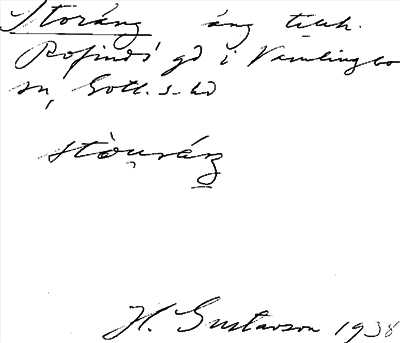 Storäng äng tillh.
Rofinds gd i Vamlingbo
sn, Gotl. s. hd
stòuräŋ
H. Gustavson 1938